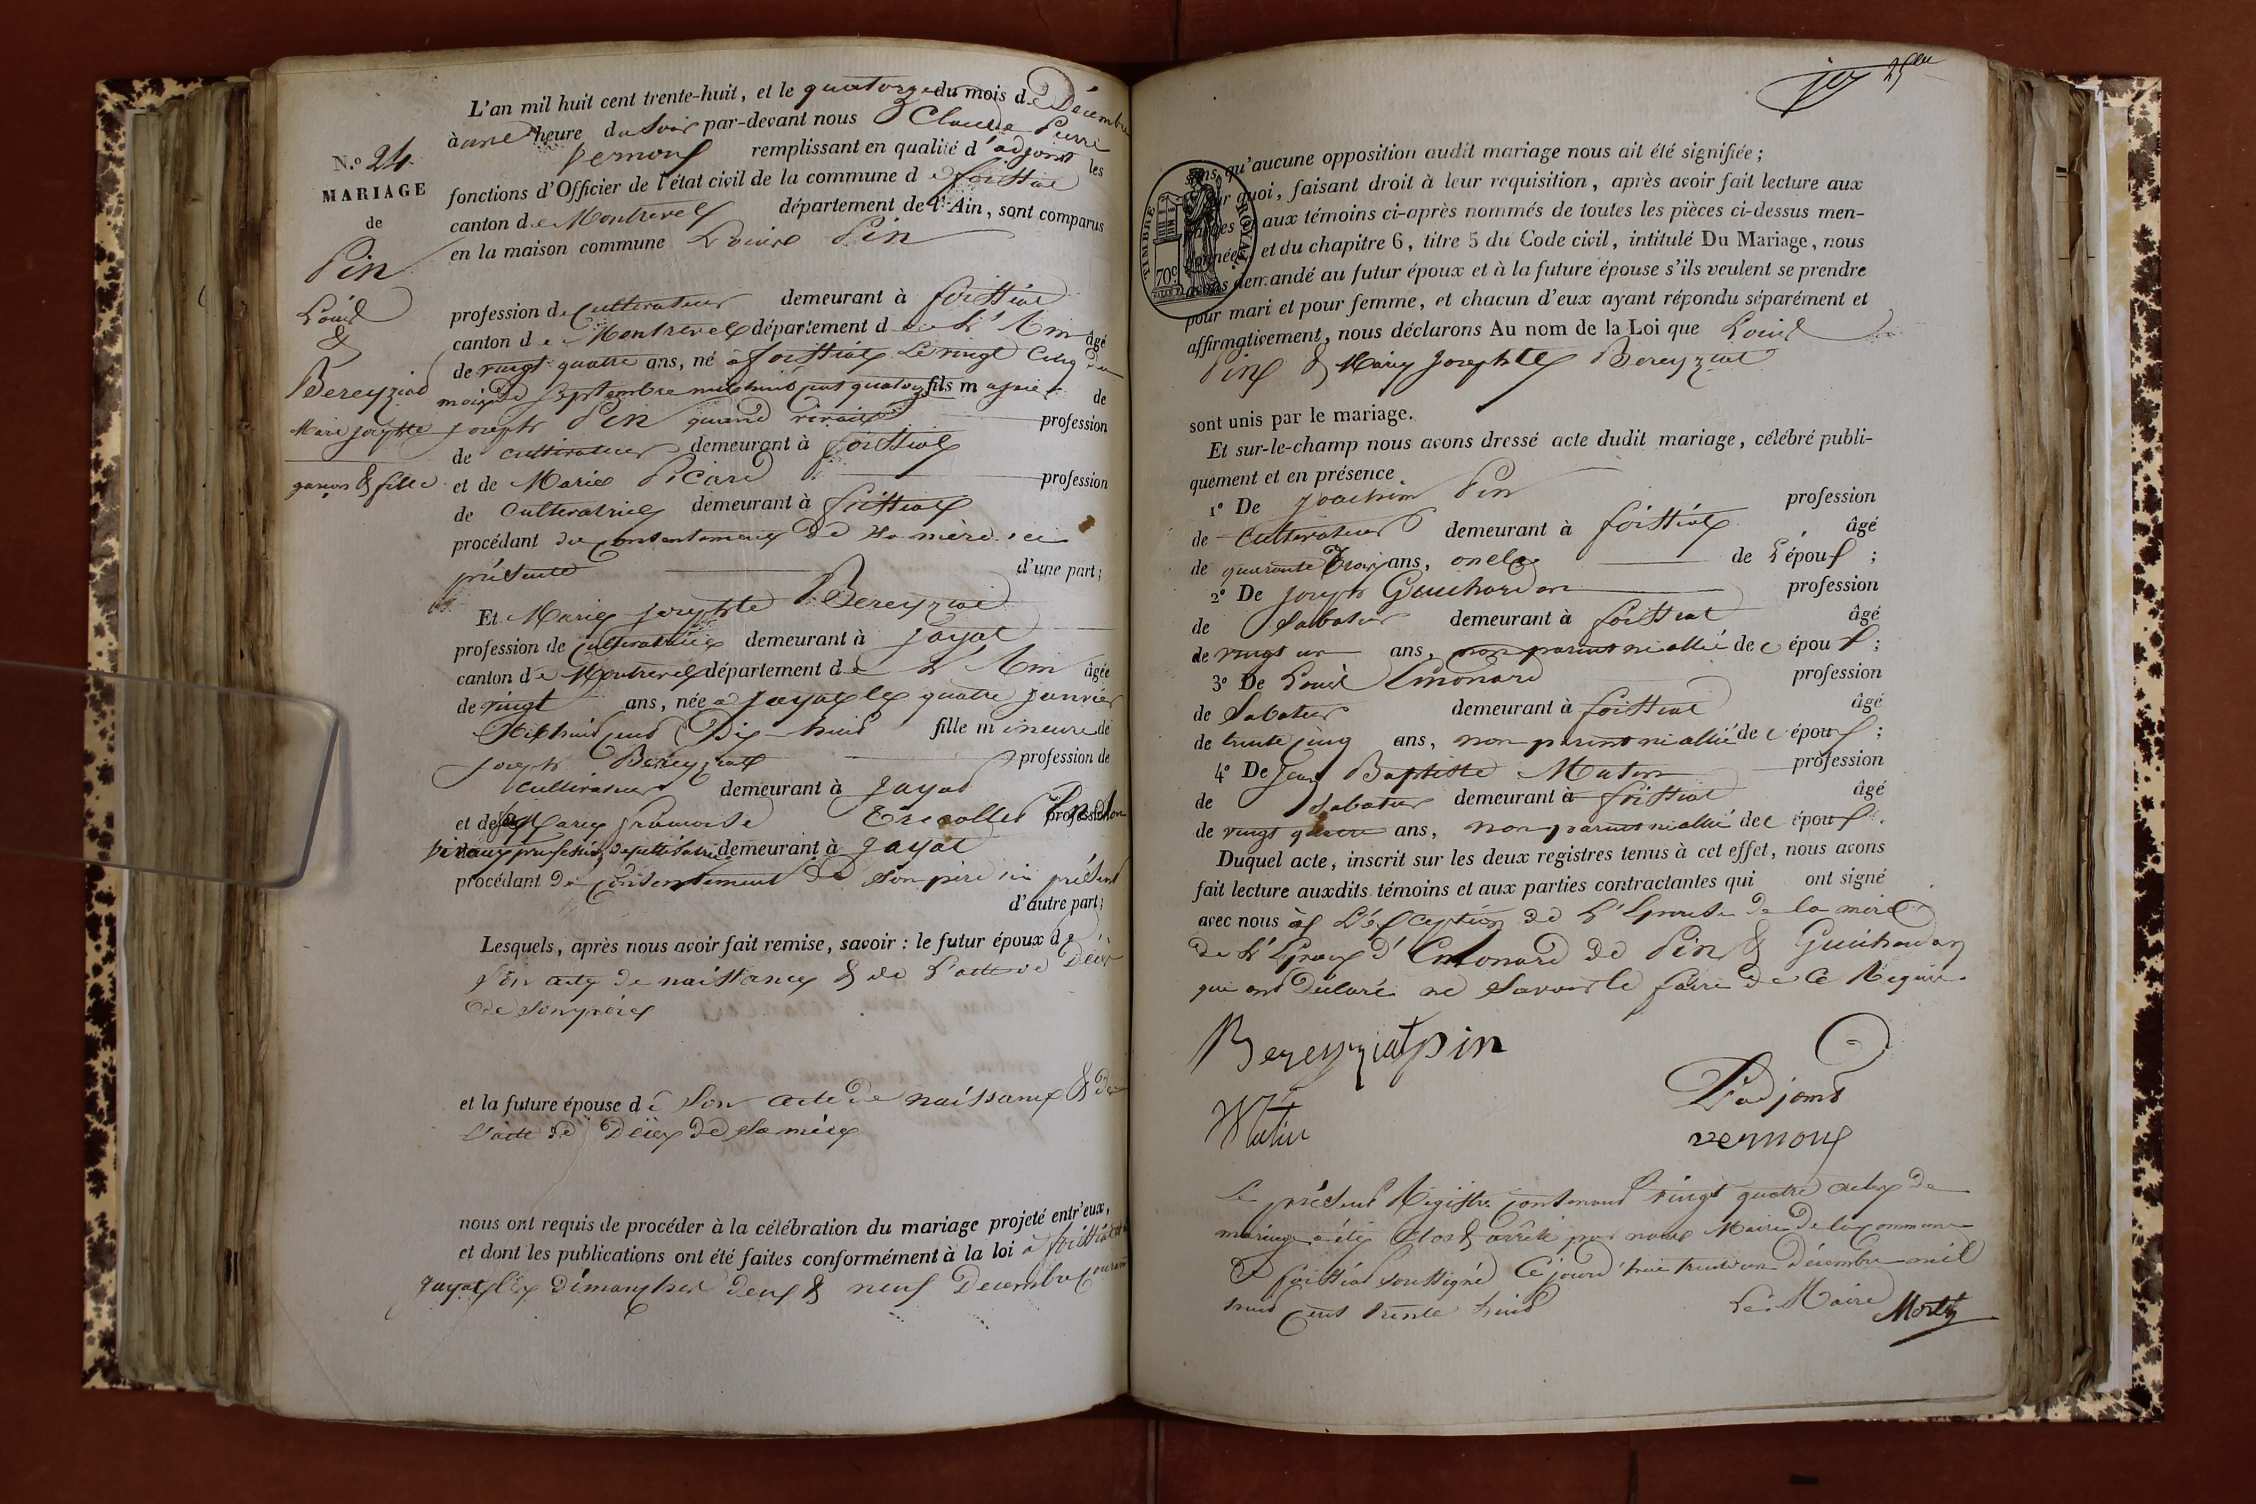 N.º 24.
MARIAGE
de
Pin
Louis
&
Bereyziat
Marie Josephte
garçon & fille
L'an mil huit cent trente-huit, et le quatorze du mois de Décembre
à une heure du soir par-devant nous Claude Pierre
Vernoux remplissant en qualité d'adjoint les
fonctions d'Officier de l'état civil de la commune de foissiat
canton de Montrevel département de l'Ain, sont comparus
en la maison commune Louis Pin
profession de Cultivateur demeurant à foissiat
canton de Montrevel département de L'Ain âgé
de vingt quatre ans, né à foissiat le vingt cinq du
mois de Septembre mil huit cent quatorze fils majeur de
joseph Pin quand vivait profession
de cultivateur demeurant à foissiat
et de Marie Picard profession
de Cultivatrice demeurant à foissiat
procédant du consentement de sa mère ici
présente d'une part;
Et Marie josephte Bereyziat
profession de Cultivatrice demeurant à jayat
canton de Montrevel département de L'Ain âgée
de vingt ans, née à jayat le quatre janvier
Mil huit cent Dix-huit fille mineure de
joseph Bereyziat profession de
Cultivateur demeurant à jayat
et de Marie françoise profession
demeurant à jayat
procédant du Consentement de Son père ici présent
d'autre part;
Lesquels, après nous avoir fait remise, savoir : le futur époux de
son acte de naissance & de L'acte de Décès
de son père
et la future épouse de Son acte de naissance & de
L'acte de Décès de sa mère
nous ont requis de procéder à la célébration du mariage projeté entr'eux,
et dont les publications ont été faites conformément à la loi à foissiat et à
jayat les Dimanches deux & neuf Decembre Courant
25
sans qu'aucune opposition audit mariage nous ait été signifiée;
Sur quoi, faisant droit à leur requisition, après avoir fait lecture aux
parties aux témoins ci-après nommés de toutes les pièces ci-dessus men-
tionnées, et du chapitre 6, titre 5 du Code civil, intitulé Du Mariage, nous
avons demandé au futur époux et à la future épouse s'ils veulent se prendre
pour mari et pour femme, et chacun d'eux ayant répondu séparément et
affirmativement, nous déclarons Au nom de la Loi que Louis
Pin & Marie josephte Bereyziat
TIMBRE ROYAL
70 c.
sont unis par le mariage.
Et sur-le-champ nous avons dressé acte dudit mariage, célébré publi-
quement et en présence
1º De joachim Pin profession
de Cultivateur demeurant à foissiat âgé
de quarante trois ans, oncle de L'époux;
2º De joseph Guichardon profession
de Sabatier demeurant à foissiat âgé
de vingt un ans, non parent ni allié de l'époux;
3º De Louis Emonard profession
de Sabatier demeurant à foissiat âgé
de trente cinq ans, non parent ni allié de l'époux;
4º De Jean Baptiste Matin profession
de Sabatier demeurant à foissiat âgé
de vingt quatre ans, non parent ni allié de l'époux.
Duquel acte, inscrit sur les deux registres tenus à cet effet, nous avons
fait lecture auxdits témoins et aux parties contractantes qui ont signé
avec nous à L'exception de L'Epouse de la mère
de L'Epoux d'Emonard de Pin & Guichardon
qui ont Déclaré ne Savoir le faire de ce Requis.
Bereyziat pin
L'adjoint
Matin
vernoux
Le présent Régistre contenant vingt quatre actes de
mariage a été Clos & arrêté par nous Maire de la commune
de foissiat soussigné Ce jourd'hui trente un Décembre mil
huit Cent trente huit Le Maire